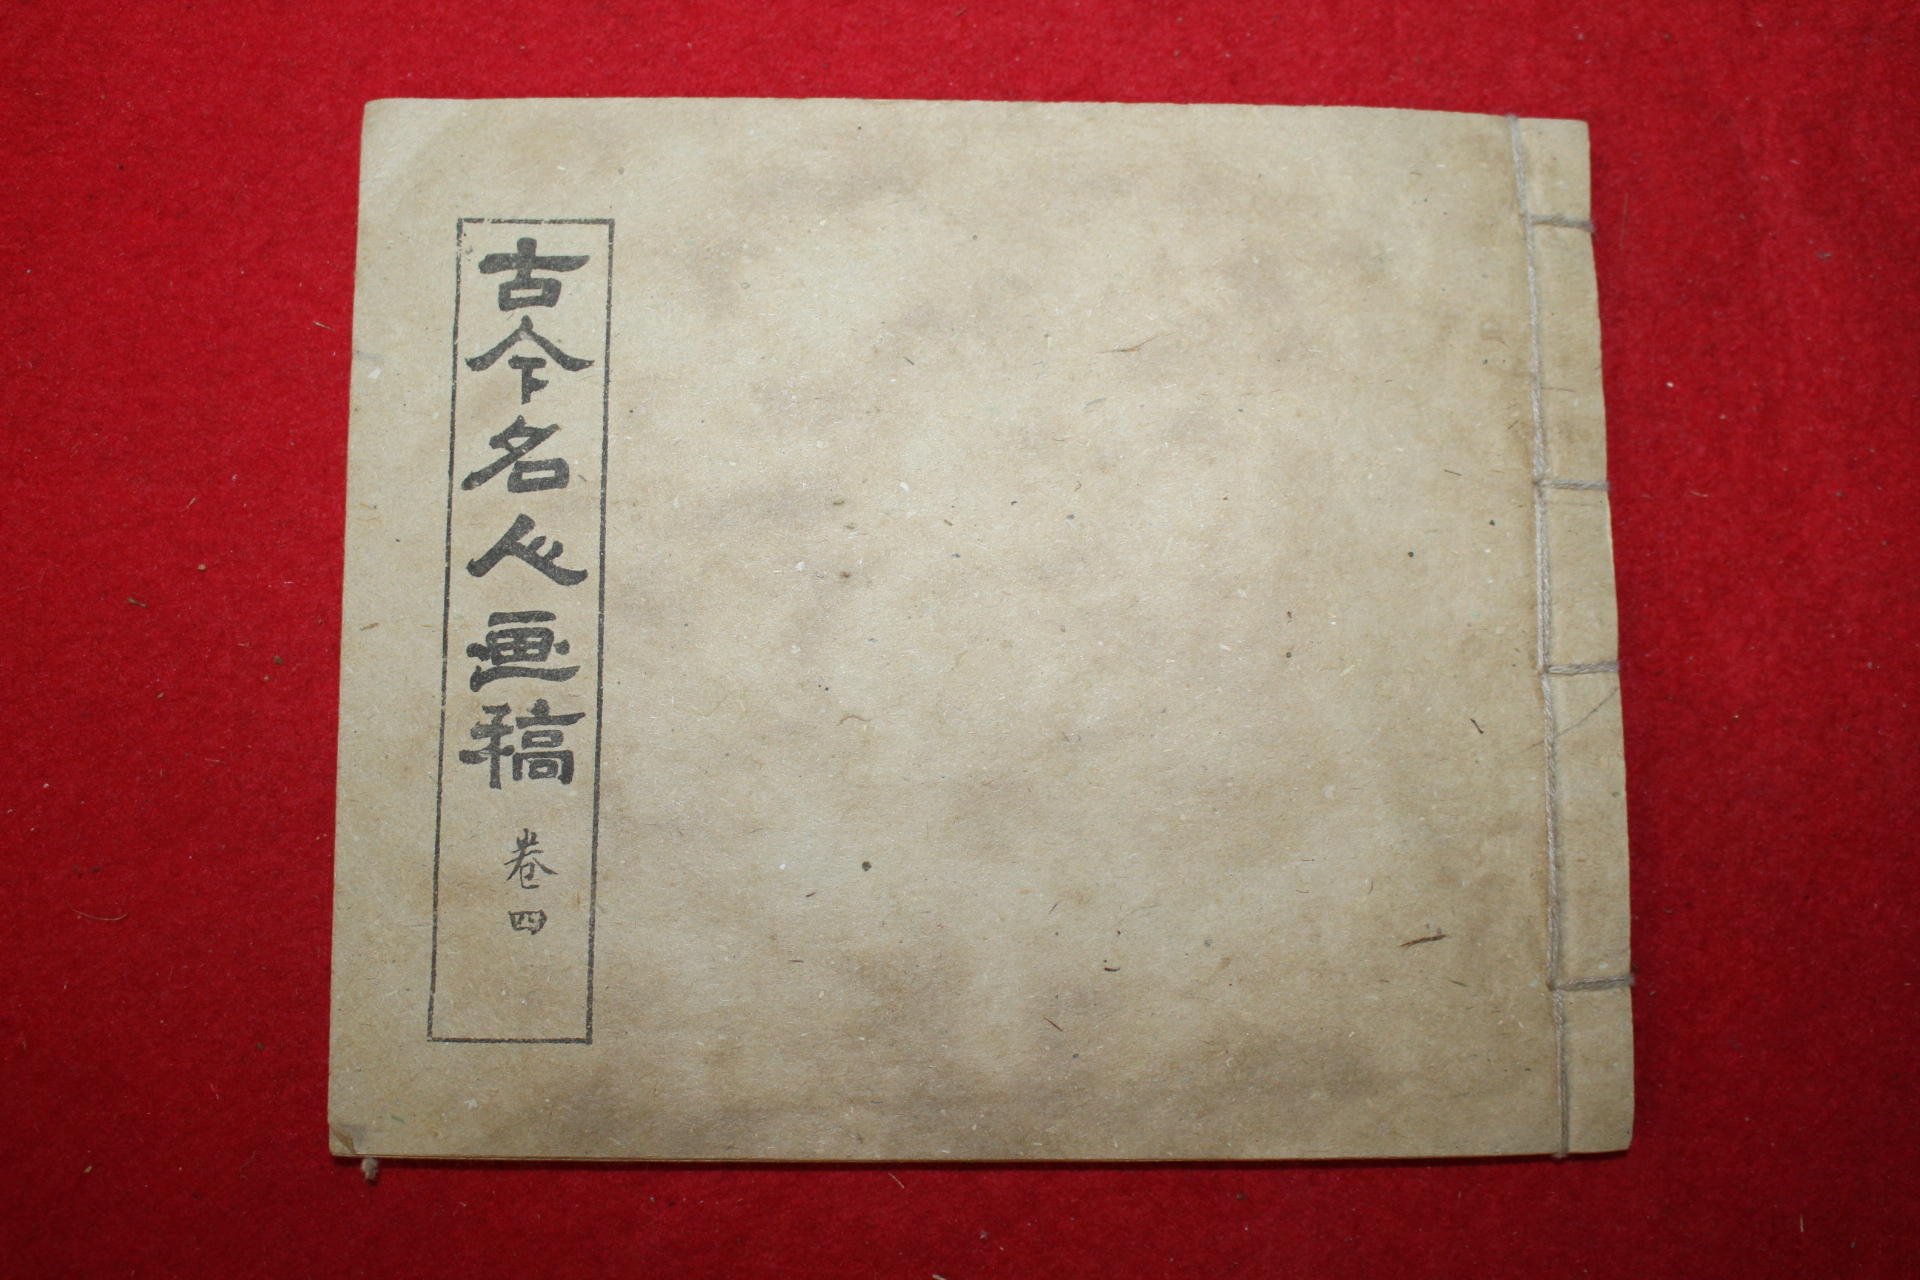 古今名人画稿
卷四